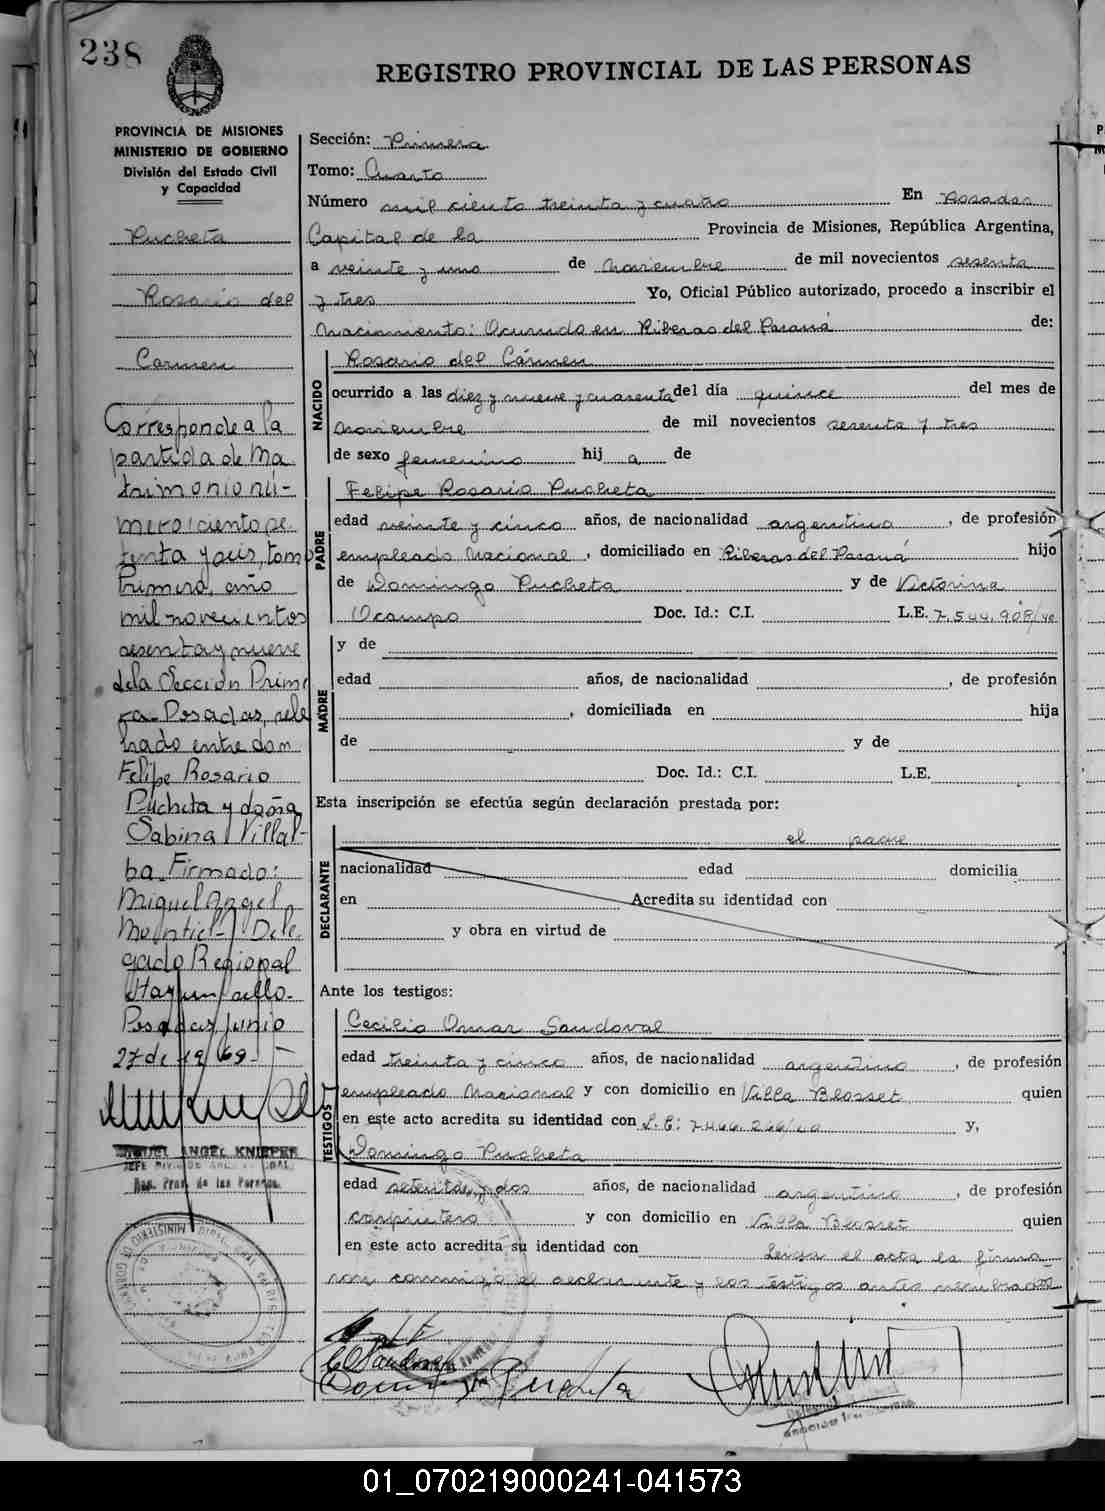 238
REGISTRO PROVINCIAL DE LAS PERSONAS
PROVINCIA DE MISIONES
MINISTERIO DE GOBIERNO
División del Estado Civil
y Capacidad
Pucheta
Rosario del
Carmen
Corresponde a la
partida de Ma
trimonio nú-
mero ciento se
tenta y seis, tomo
Primero, año
mil novecientos
sesenta y nueve
de la Sección Prime
ra Posadas, cele
brado entre don
Felipe Rosario
Pucheta y doña
Sabina Villal-
ba. Firmado:
Miguel Angel
Montiel - Dele
gado Regional
Hay un sello.
Posadas, Junio
27 de 1969.-
MIGUEL ANGEL KNIEPER
Reg. Prov. de las Personas
Sección: Primera
Tomo: Cuarto
Número mil ciento treinta y cuatro En Posadas
Capital de la Provincia de Misiones, República Argentina,
a veinte y uno de Noviembre de mil novecientos sesenta
y tres Yo, Oficial Público autorizado, procedo a inscribir el
Nacimiento: Ocurrido en Riberas del Paraná de:
NACIDO
Rosario del Cármen
ocurrido a las diez y nueve y cuarenta del día quince del mes de
Noviembre de mil novecientos sesenta y tres
de sexo femenino hij a de
PADRE
Felipe Rosario Pucheta
edad veinte y cinco años, de nacionalidad argentino, de profesión
empleado Nacional, domiciliado en Riberas del Paraná hijo
de Domingo Pucheta y de Victorina
Ocampo Doc. Id.: C.I. L.E. 7.544.908
MADRE
y de
edad años, de nacionalidad , de profesión
, domiciliada en hija
de y de
Doc. Id.: C.I. L.E.
Esta inscripción se efectúa según declaración prestada por:
DECLARANTE
el padre
nacionalidad edad domicilia
en Acredita su identidad con
y obra en virtud de
Ante los testigos:
TESTIGOS
Cecilio Omar Sandoval
edad treinta y cinco años, de nacionalidad argentino, de profesión
empleado Nacional y con domicilio en Villa Blosset quien
en este acto acredita su identidad con L.E: 7.466.266 y,
Domingo Pucheta
edad setenta y dos años, de nacionalidad argentino, de profesión
carpintero y con domicilio en Villa Blosset quien
en este acto acredita su identidad con Leida el acta la firma
ron conmigo el declarante y los testigos antes nombrados
C O Sandoval
Domingo Pucheta
01_070219000241-041573